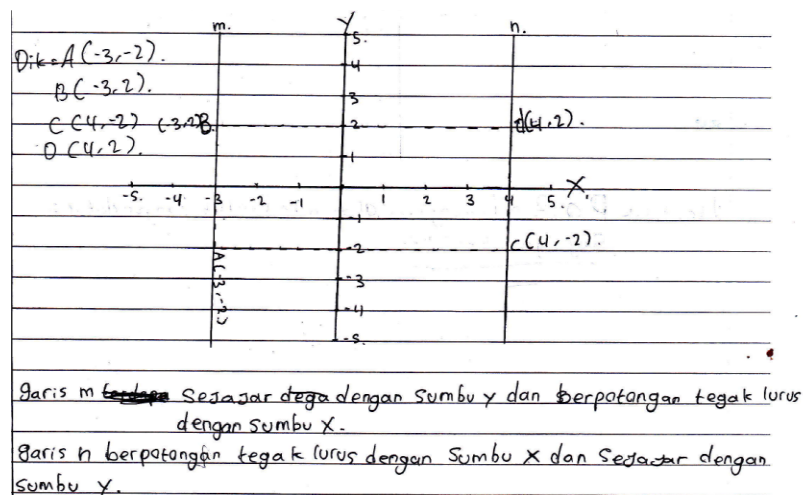 m.
Y
n.
Dik = A (-3,-2).
B (-3,2).
C (4,-2) (-3,2)B
D (4,2).
d(4,2).
5.
4
3
2
1
-5. -4 -3 -2 -1 1 2 3 4 5. X
-1
-2
-3
-4
-5.
C (4,-2).
A (-3,-2)
garis m sejajar dega dengan sumbu y dan berpotongan tegak lurus
dengan sumbu X.
garis n berpotongan tegak lurus dengan sumbu X dan sejajar dengan
sumbu Y.